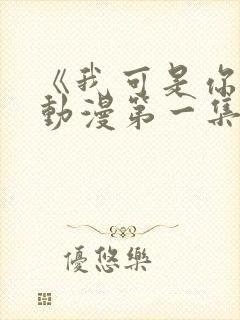 《我可是你
動漫第一集
優悠樂